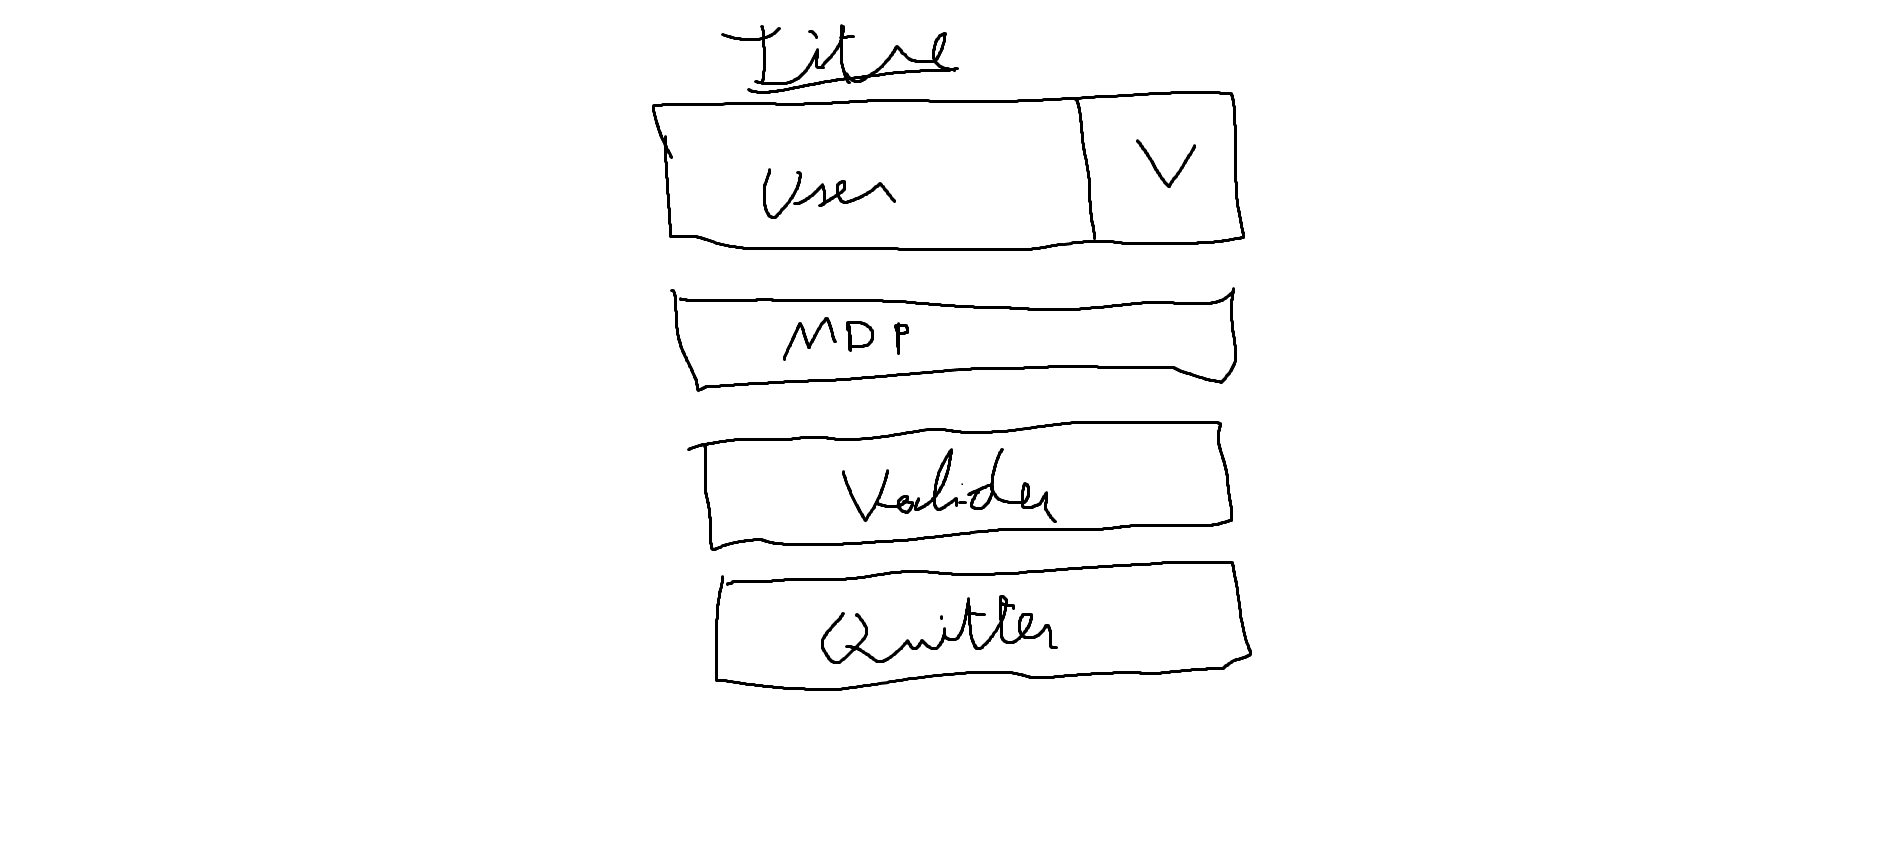 Titre
User V
MDP
Valider
Quitter